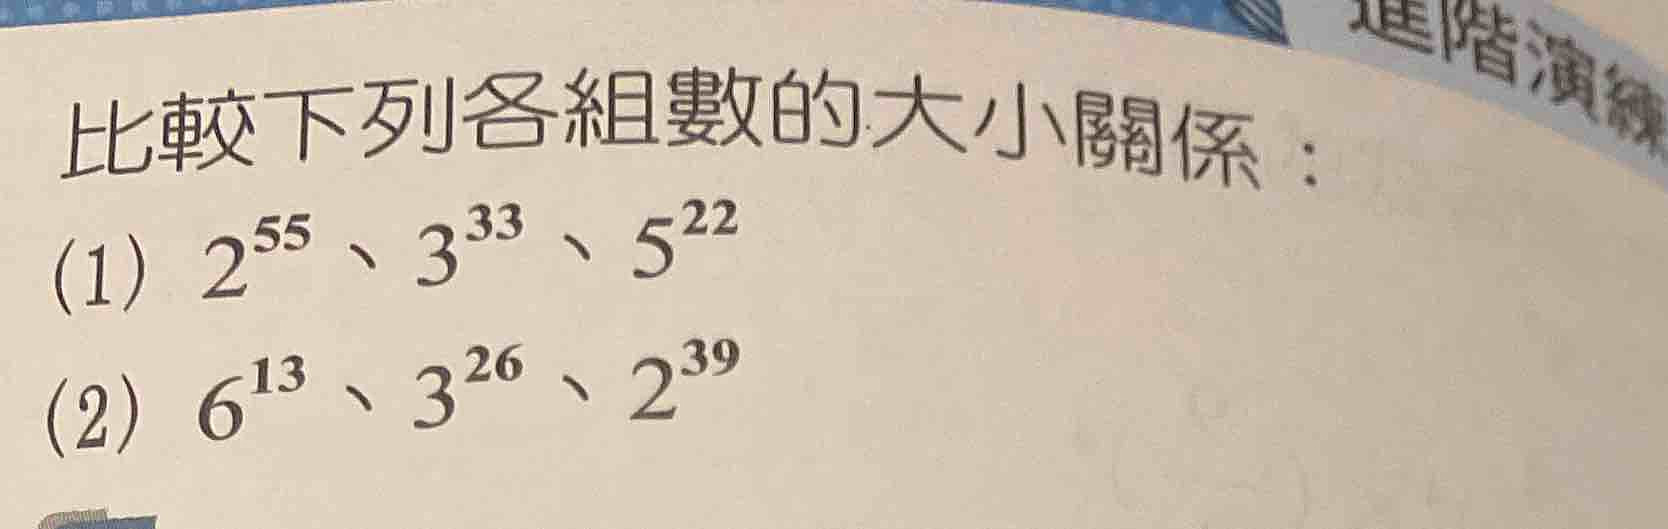 進階演練
比較下列各組數的大小關係：
(1) 2⁵⁵、3³³、5²²
(2) 6¹³、3²⁶、2³⁹